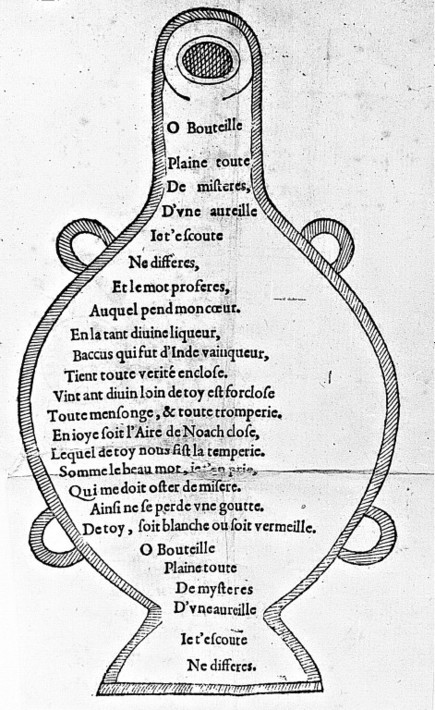 O Bouteille
Plaine toute
De miſteres,
D'vne aureille
Ie t'eſcoute
Ne differes,
Et le mot proferes,
Auquel pend mon cœur.
En la tant diuine liqueur,
Baccus qui fut d'Inde vaiuqueur,
Tient toute verité encloſe.
Vint ant diuin loin de toy eſt forcloſe
Toute menſonge, & toute tromperie.
En ioye ſoit l'Aire de Noach cloſe,
Lequel de toy nous fiſt la temperie.
Somme le beau mot, ie t'en prie,
Qui me doit oſter de miſere.
Ainſi ne ſe perde vne goutte.
De toy, ſoit blanche ou ſoit vermeille.
O Bouteille
Plaine toute
De myſteres
D'vne aureille
Ie t'eſcoute
Ne differes.